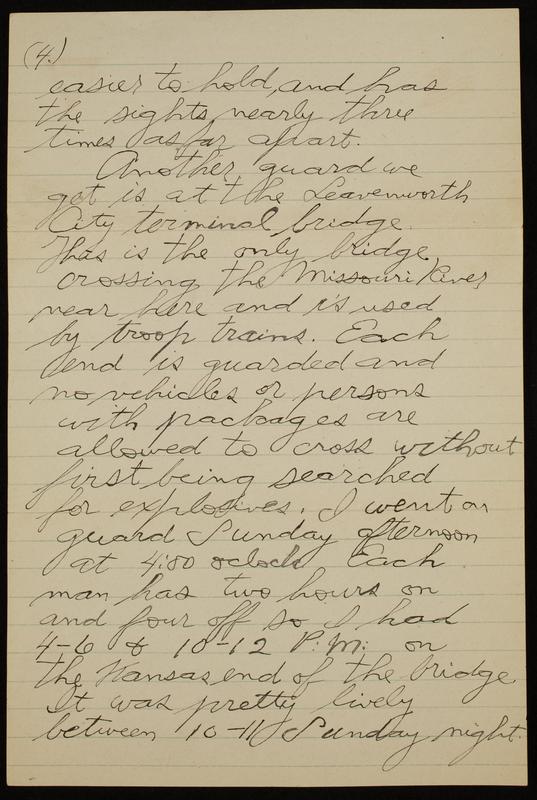 (4.)
easier to hold, and has
the sights nearly three
times as far apart.
Another guard we
get is at the Leavenworth
City terminal bridge.
This is the only bridge
crossing the Missouri River
near here and is used
by troop trains. Each
end is guarded and
no vehicles or persons
with packages are
allowed to cross without
first being searched
for explosives. I went on
guard Sunday afternoon
at 4:00 oclock. Each
man has two hours on
and four off so I had
4-6 & 10-12 P.M. on
the Kansas end of the bridge.
It was pretty lively
between 10-11 Sunday night.